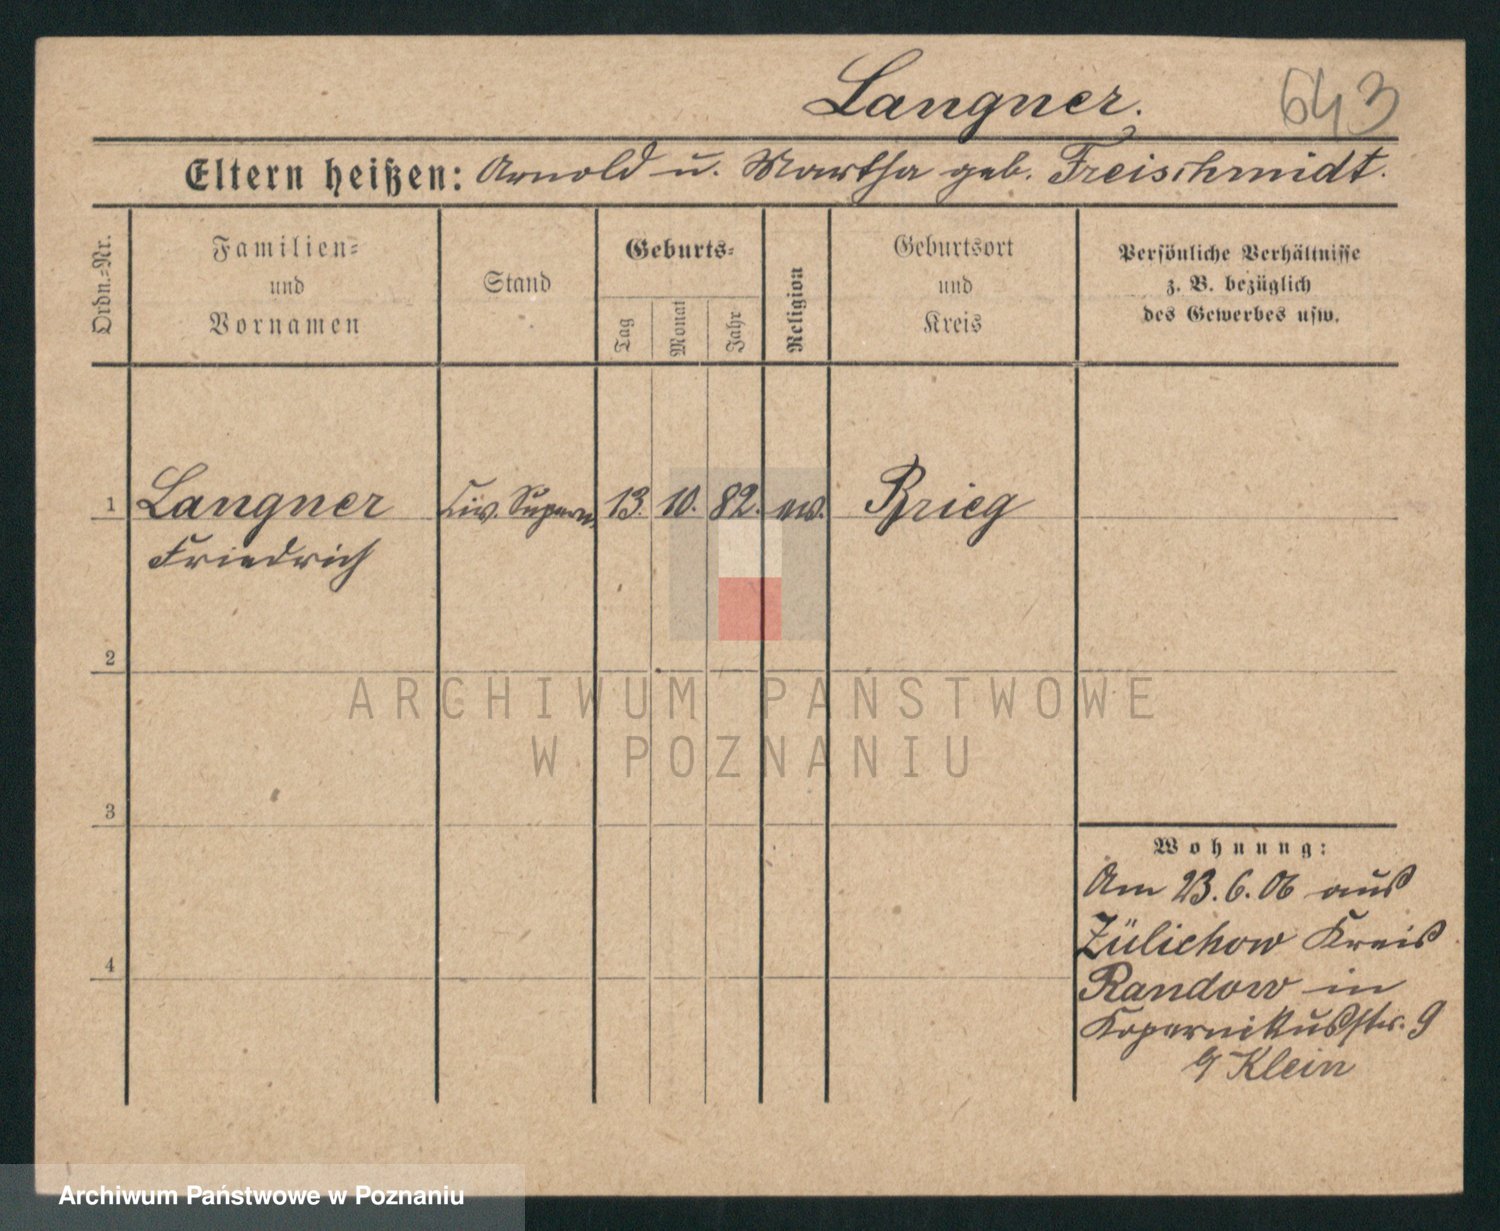 Langner.
643
Eltern heißen: Arnold u. Martha geb. Freischmidt.
Ordn.-Nr.
Familien-
und
Vornamen
Stand
Geburts-
Tag
Monat
Jahr
Religion
Geburtsort
und
Kreis
Persönliche Verhältnisse
z. B. bezüglich
des Gewerbes usw.
1 Langner Civ. Supern. 13. 10. 82. ev. Brieg
Friedrich
2
3
4
Wohnung:
Am 23.6.06 aus
Züllichow Kreis
Randow in
Kopernikusstr. 9
b/ Klein
ARCHIWUM PAŃSTWOWE
W POZNANIU
Archiwum Państwowe w Poznaniu